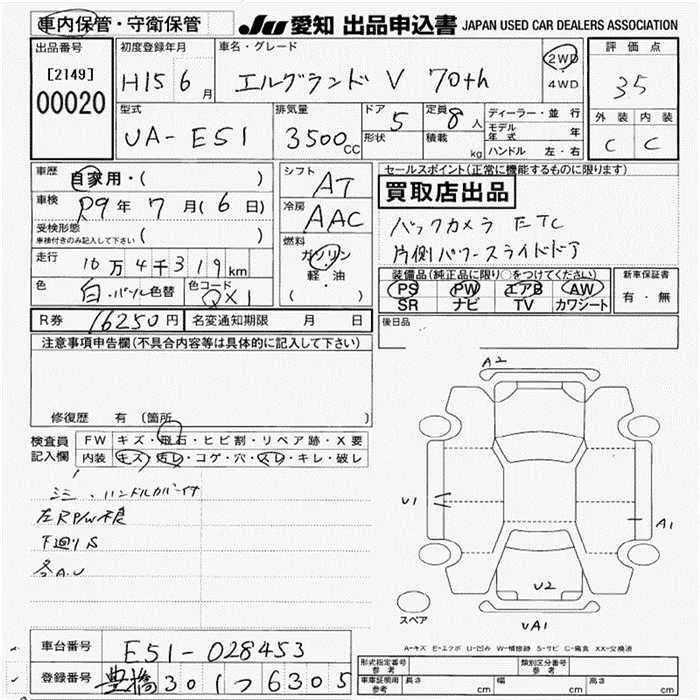 車内保管・守衛保管 JU 愛知 出品申込書 JAPAN USED CAR DEALERS ASSOCIATION
出品番号 初度登録年月 車名・グレード 評価点
[2149] H15 6月 エルグランド V 70th 2WD 35
00020 4WD
型式 排気量 ドア 定員 ディーラー・並行 外装 内装
UA-E51 3500cc 5 8人 モデル年式 年 C C
形状 積載 kg ハンドル 左・右
車歴 自家用・( ) シフト AT セールスポイント(正常に機能するものに限ります)
車検 R9年 7月(6日) 冷房 AAC 買取店出品
受検形態 ( ) バックカメラ ETC
車検付きのみ記入して下さい 燃料 片側パワースライドドア
走行 10万4千319km ガソリン
軽・油 装備品(純正品に限り○をつけてください) 新車保証書
色 白・パール色替 色コード QX1 ( ) PS PW エアB AW 有・無
SR ナビ TV カワシート
R券 16250円 名変通知期限 月 日 後日品
注意事項申告欄(不具合内容等は具体的に記入して下さい)
修復歴 有 (箇所
検査員 FW キズ・飛石・ヒビ割・リペア跡・X要
記入欄 内装 キズ・汚レ・コゲ・穴・スレ・キレ・破レ
ハンドルカバー付
左RP/W不良
下廻りS
各A.U
A2
U1
A1
U2
UA1
スペア
A-キズ E-エクボ U-凹み W-補修跡 S-サビ C-腐食 XX-交換済
車台番号 E51-028453
登録番号 豊橋 301 つ 6305
形式指定番号 参考 類別区分番号 参考
車庫証明用 参考 長さ cm 幅 cm 高さ cm